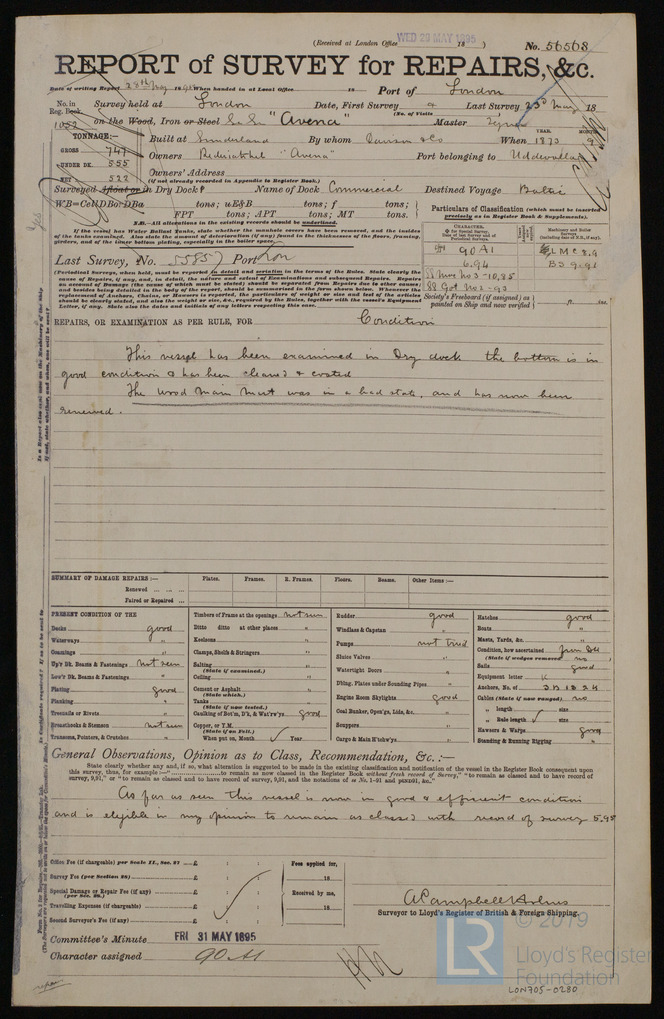 (Received at London Office WED 29 MAY 1895 18 )
No. 56568
REPORT of SURVEY for REPAIRS, &c.
Date of writing Report 28th May 18 When handed in at Local Office 18 Port of London
No. in Reg. Book.
Survey held at London Date, First Survey & Last Survey 23rd May 18
(No. of Visits )
1052 on the Wood, Iron or Steel "Avena" Master
TONNAGE:—
GROSS 747
UNDER DK. 555
NET 522
Built at Sunderland By whom &Co When 1873
YEAR. MONTH.
9
Owners "Avena" Port belonging to Uddevalla
Owners' Address
(if not already recorded in Appendix to Register Book.)
Surveyed Afloat or in Dry Dock? Name of Dock Commercial Destined Voyage Baltic
WB=CellDBorDBa tons; uE&B tons; f tons;
FPT tons; APT tons; MT tons.
N.B.—All alterations in the existing records should be underlined.
If the vessel has Water Ballast Tanks, state whether the manhole covers have been removed, and the insides
of the tanks examined. Also state the amount of deterioration (if any) found in the thicknesses of the floors, framing,
girders, and of the inner bottom plating, especially in the boiler space.
Particulars of Classification (which must be inserted
precisely as in Register Book & Supplements).
CHARACTER.
Machinery and Boiler
Surveys
90 A1
6.94
LMC 8.91
BS 9.91
SS No 3-10,85
SS Got No 2-90
Society's Freeboard (if assigned) as
painted on Ship and now verified ft. ins.
Last Survey, No. 55857 Port Lon
(Periodical Surveys, when held, must be reported in detail and seriatim in the terms of the Rules. State clearly the
cause of Repairs, if any, and, in detail, the nature and extent of Examinations and subsequent Repairs. Repairs
on account of Damage (the cause of which must be stated) should be separated from Repairs due to other causes;
and besides being detailed in the body of the report, should be summarized in the form shewn below. Whenever the
replacement of Anchors, Chains, or Hawsers is reported, the particulars of weight or size and test of the articles
should be clearly stated, and also the weight or size, &c., required by the Rules, together with the vessel's Equipment
Letter, if any. State also the dates and initials of any letters respecting this case.
REPAIRS, OR EXAMINATION AS PER RULE, FOR Condition
This vessel has been examined in Dry dock the bottom is in
good condition & has been cleaned & coated
The wood main mast was in a bad state, and has now been
renewed.
SUMMARY OF DAMAGE REPAIRS:— Plates. Frames. R. Frames. Floors. Beams. Other Items:—
Renewed ... ... ...
Faired or Repaired ... ...
PRESENT CONDITION OF THE
Decks good
Waterways "
Coamings "
Up'r Dk. Beams & Fastenings not seen
Low'r Dk. Beams & Fastenings "
Plating good
Planking
Treenails or Rivets
Breasthooks & Stemson not seen
Transoms, Pointers, & Crutches "
Timbers of Frame at the openings not seen
Ditto ditto at other places "
Keelsons "
Clamps, Shelfs & Stringers "
Salting
(State if examined.)
Ceiling "
Cement or Asphalt "
(State which.)
Tanks
(State if now tested.)
Caulking of Bot'm, D'k, & Wat'rw'ys good
Copper, or Y.M.
(State if on Felt.)
When put on, Month Year
Rudder good
Windlass & Capstan "
Pumps not tried
Sluice Valves "
Watertight Doors "
Dblng. Plates under Sounding Pipes "
Engine Room Skylights good
Coal Bunker, Open'gs, Lids, &c. "
Scuppers "
Cargo & Main H'tchw'ys "
Hatches good
Boats "
Masts, Yards, &c. "
Condition, how ascertained from Dk
(State if wedges removed) no
Sails good
Equipment letter K
Anchors, No. of 3B 1S 2K
Cables (State if now ranged) no
" length size
" Rule length size
Hawsers & Warps good
Standing & Running Rigging "
General Observations, Opinion as to Class, Recommendation, &c.:—
State clearly whether any and, if so, what alteration is suggested to be made in the existing classification and notification of the vessel in the Register Book consequent upon
this survey, thus, for example:—" to remain as now classed in the Register Book without fresh record of Survey," "to remain as classed and to have record of
survey, 9,91," or "to remain as classed and to have record of survey, 9,91, and the notations of ss No. 1-91 and
As far as seen this vessel is now in good & efficient condition
and is eligible in my opinion to remain as classed with record of survey 5,95
Office Fee (if chargeable) per Scale II., Sec. 27 £ : :
Survey Fee (per Section 28) £ : :
Special Damage or Repair Fee (if any) £ : :
(per Sec. 28.)
Travelling Expenses (if chargeable) £ : :
Second Surveyor's Fee (if any) £ : :
Fees applied for,
18
Received by me,
18
A Campbell Holms
Surveyor to Lloyd's Register of British & Foreign Shipping.
Committee's Minute FRI 31 MAY 1895
Character assigned 90 A1
© 2019
LR
Lloyd's Register
Foundation
LON705-0280